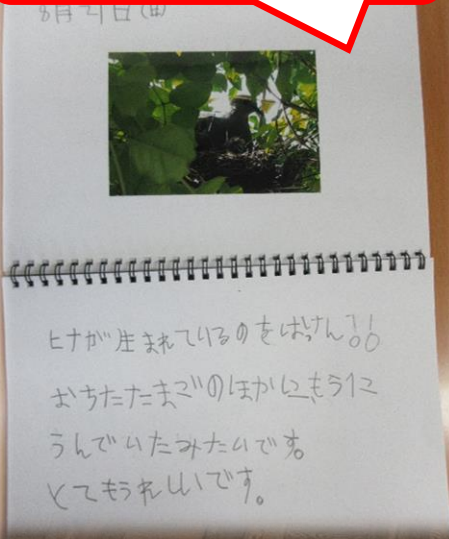 8月21日(日)
ヒナが生まれているのをはっけん!!
おちたたまごのほかに、もう1こ
うんでいたみたいです。
とてもうれしいです。